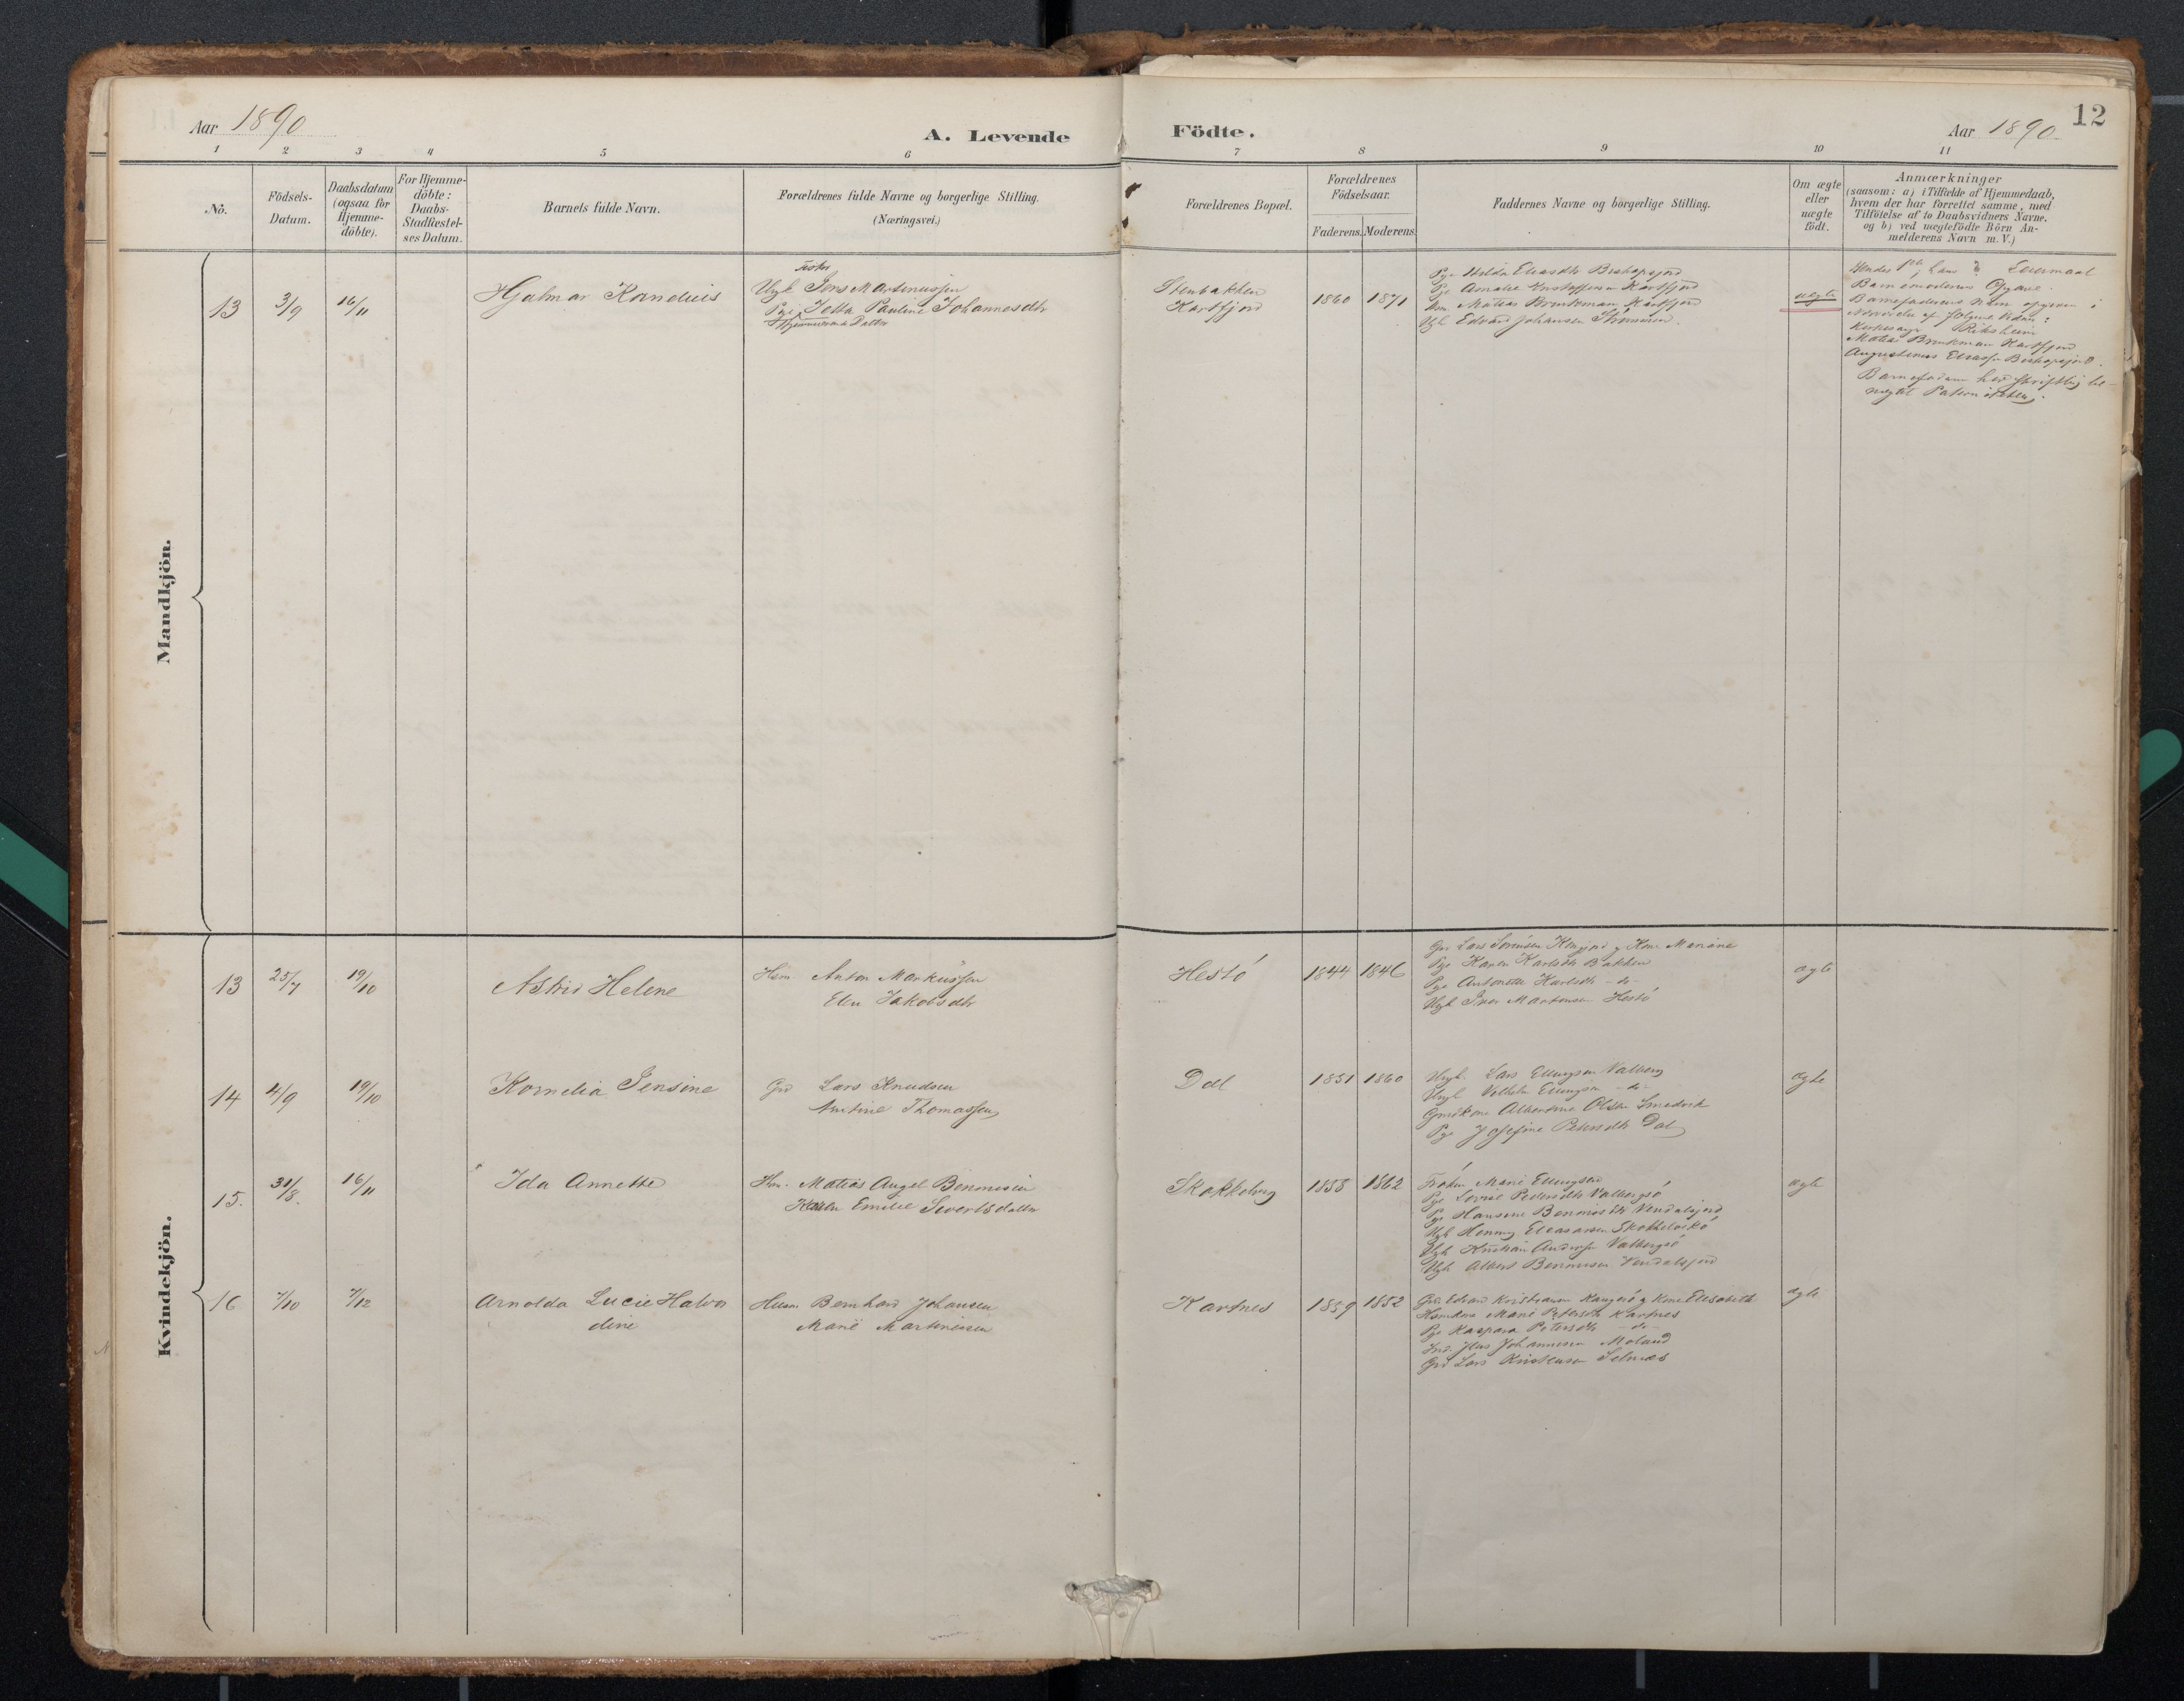 Aar 1890
A. Levende
Födte.
Aar 1890
12
1 2 3 4 5 6 7 8 9 10 11
No.
Födsels-
Datum.
Daabsdatum
(ogsaa for
Hjemme-
döbte).
For Hjemme-
döbte:
Daabs-
Stadfæstel-
ses Datum.
Barnets fulde Navn.
Forældrenes fulde Navne og borgerlige Stilling.
(Næringsvei.)
Forældrenes Bopæl.
Forældrenes
Födselsaar.
Faderens. Moderens.
Faddernes Navne og borgerlige Stilling.
Om ægte
eller
uægte
födt.
Anmærkninger
(saasom: a) i Tilfælde af Hjemmedaab,
hvem der har forrettet samme, med
Tilföielse af to Daabsvidners Navne.
og b) ved uægtefödte Börn An-
melderens Navn m. V.)
Mandkjön.
13 3/9 16/11 Hjalmar Kornelius
Ungk Jens Martinussen
Pige Jetta Pauline Johannesdtr
Stenbakken
Karlfjord
1860 1871
Pge Hilda Eliasdtr Bishopsjord
Pge Amalie Kristoffersen Karlfjord
Matias Brinkman Karlfjord
Ugk Edvard Johansen
uægte
Leiermaal
Barnemoderens Opgave.
Barnefaderens Navn opgiven i
Matias Brinkman Karlfjord
Augustinus Eliassen Bishopsjord.
Barnefaderen har skriftlig be-
nægtet Paterniteten.
Kvindekjön.
13 25/7 19/10 Astrid Helene
Hsm. Anton Markussen
Elen Jakobsdtr
Hestö
1844 1846
Gr Lars Sörensen Klingjord g Kone Mariane
Pge Karen Karlsdtr Bakken
Pge Antonette Karlsdtr -do-
Ungk Iver Martinsen Hestö
ægte
14 4/9 19/10 Kornelia Jensine
Grd Lars Knudsen
Antine Thomassen
Dal
1851 1860
Ungk. Lars Ellingsen Valberg
Ungk Vilhelm Ellingsen -do-
Grmdkone Albertine Olsen Smedvik
Pge Josefine Petersdtr Dal
ægte
15. 31/8. 16/11 Ida Annette
Hsm. Matias Angel Benonisen
Karen Emilie Sivertsdatter
Skokkelvig
1853 1862
Fröken Marie Ellingsen
Pge Lovise Pedersdtr Valbergsö
Pge Hansine Benonisdtr Vendalsjord
Ugk Henning Eleasarsen
Ugk Kristian Andersen Valbergsö
Ugk Albert Benonisen Vendalsjord
ægte
16 7/10 7/12 Arnolda Lucie Halvor
dine
Husm Bernhard Johansen
Marie Martinusen
Karfnes
1859 1852
Grd Edvard Kristiansen Kangerö g Kone Elisabeth
Hsmdkone Marie Petersdtr Karfnes
Pge Kaspara Petersdtr -do-
Johannesen Moland
Grd Lars Kristensen Selnæs
ægte